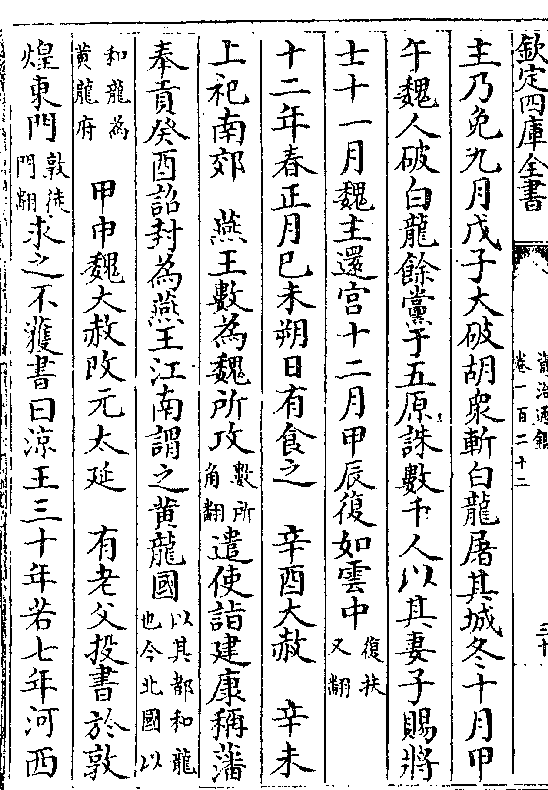 欽定四庫全書
資治通鑑
卷一百二十二
三十
主乃免九月戊子大破胡衆斬白龍屠其城冬十月甲
午魏人破白龍餘黨于五原誅數千人以其妻子賜將
士十一月魏主還宮十二月甲辰復如雲中復扶又翻
十二年春正月己未朔日有食之　辛酉大赦　辛未
上祀南郊　燕王數為魏所攻數所角翻遣使詣建康稱藩
奉貢癸酉詔封為燕王江南謂之黄龍國以其都和龍也今北國以
和龍為黄龍府　甲申魏大赦改元太延　有老父投書於敦
煌東門敦徒門翻求之不獲書曰涼王三十年若七年河西